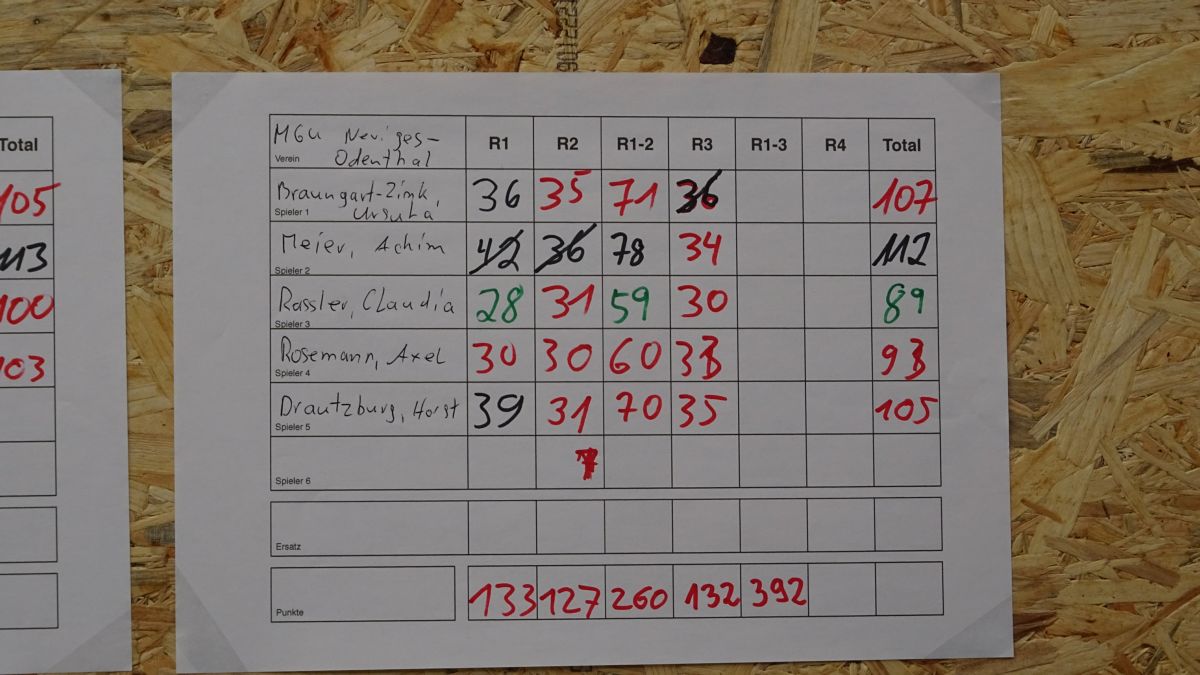 Total
105
113
100
103
MGU Neviges-
Odenthal
Verein
R1 R2 R1-2 R3 R1-3 R4 Total
Braungart-Zink,
Ursula
Spieler 1
36 35 71 36 107
Meier, Achim
Spieler 2
42 36 78 34 112
Rassler, Claudia
Spieler 3
28 31 59 30 89
Rosemann, Axel
Spieler 4
30 30 60 33 93
Drautzburg, Horst
Spieler 5
39 31 70 35 105
Spieler 6
Ersatz
Punkte
133 127 260 132 392